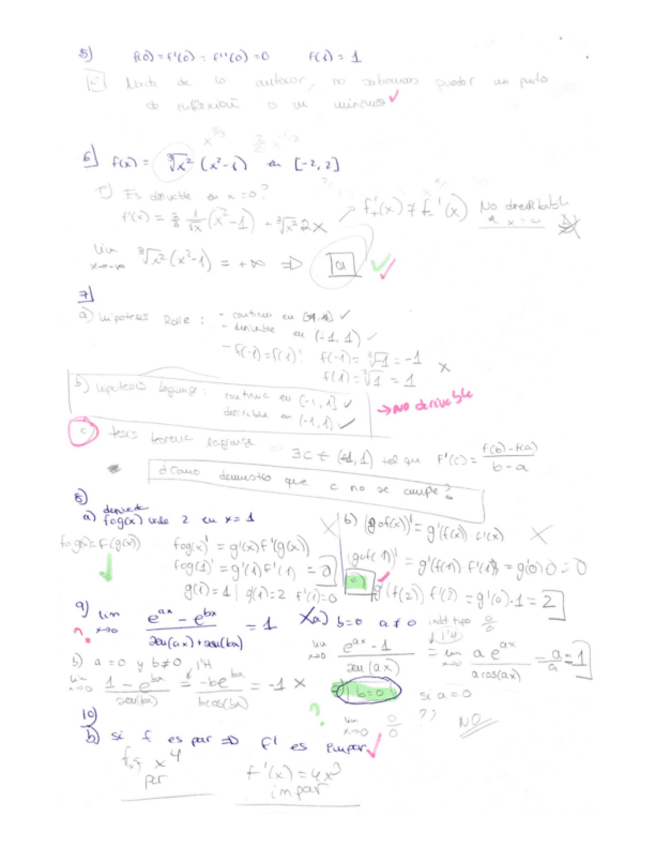 5) f(0) = f'(0) = f''(0) = 0 f(1) = 1
de lo anterior, no
de inflexión o un mínimo ✓
6) f(x) = ∛x² (x²-1) en [-2,2]
Es derivable en x=0?
f'(x) = 2/3 1/∛x (x²-1) + ∛x² 2x f'₊(x) ≠ f'₋(x) No derivable
lim ∛x² (x²-1) = +∞ ⇒ a ✓
7)
a) Hipótesis Rolle : - continua en [-1,1] ✓
- derivable en (-1,1) ✓
- f(-1) = f(1)! f(-1) = ∛-1 = -1
f(1) = ∛1 = 1 x
b) hipótesis lagrange: continua en [-1,1] ✓
derivable en (-1,1) ✓ → NO derivable
c) tesis teorema lagrange = ∃c ∈ (-1,1) tal que f'(c) = f(b)-f(a) / b-a
¿Cómo demuestro que c no se cumple?
8) derivada
a) fog(x) vale 2 en x=1 X b) (gof(x))' = g'(f(x)) · f'(x) X
fog(x) = f(g(x)) fog(x)' = g'(x) f'(g(x)) (gof(1))' = g'(f(1)) f'(1) = g'(0)·0 = 0
fog(1)' = g'(1) f'(1) = 0
g(1)=1 g'(1)=2 f'(1)=0 g'(f(2)) f'(2) = g'(0)·1 = 2
9) lim x→0 e^ax - e^bx / sen(ax)+sen(bx) = 1 X a) b=0 a≠0 0/0
? lim x→0 e^ax - 1 / sen(ax) = lim x→0 a e^ax / a cos(ax) = a/a = 1
b) a=0 y b≠0 L'H
lim x→0 1 - e^bx / sen(bx) = -be^bx / bcos(bx) = -1 X b=0 si a=0
? lim x→0 0/0 ?? NO
10)
b) si f es par ⇒ f' es impar ✓
x⁴ f'(x) = 4x³
par impar